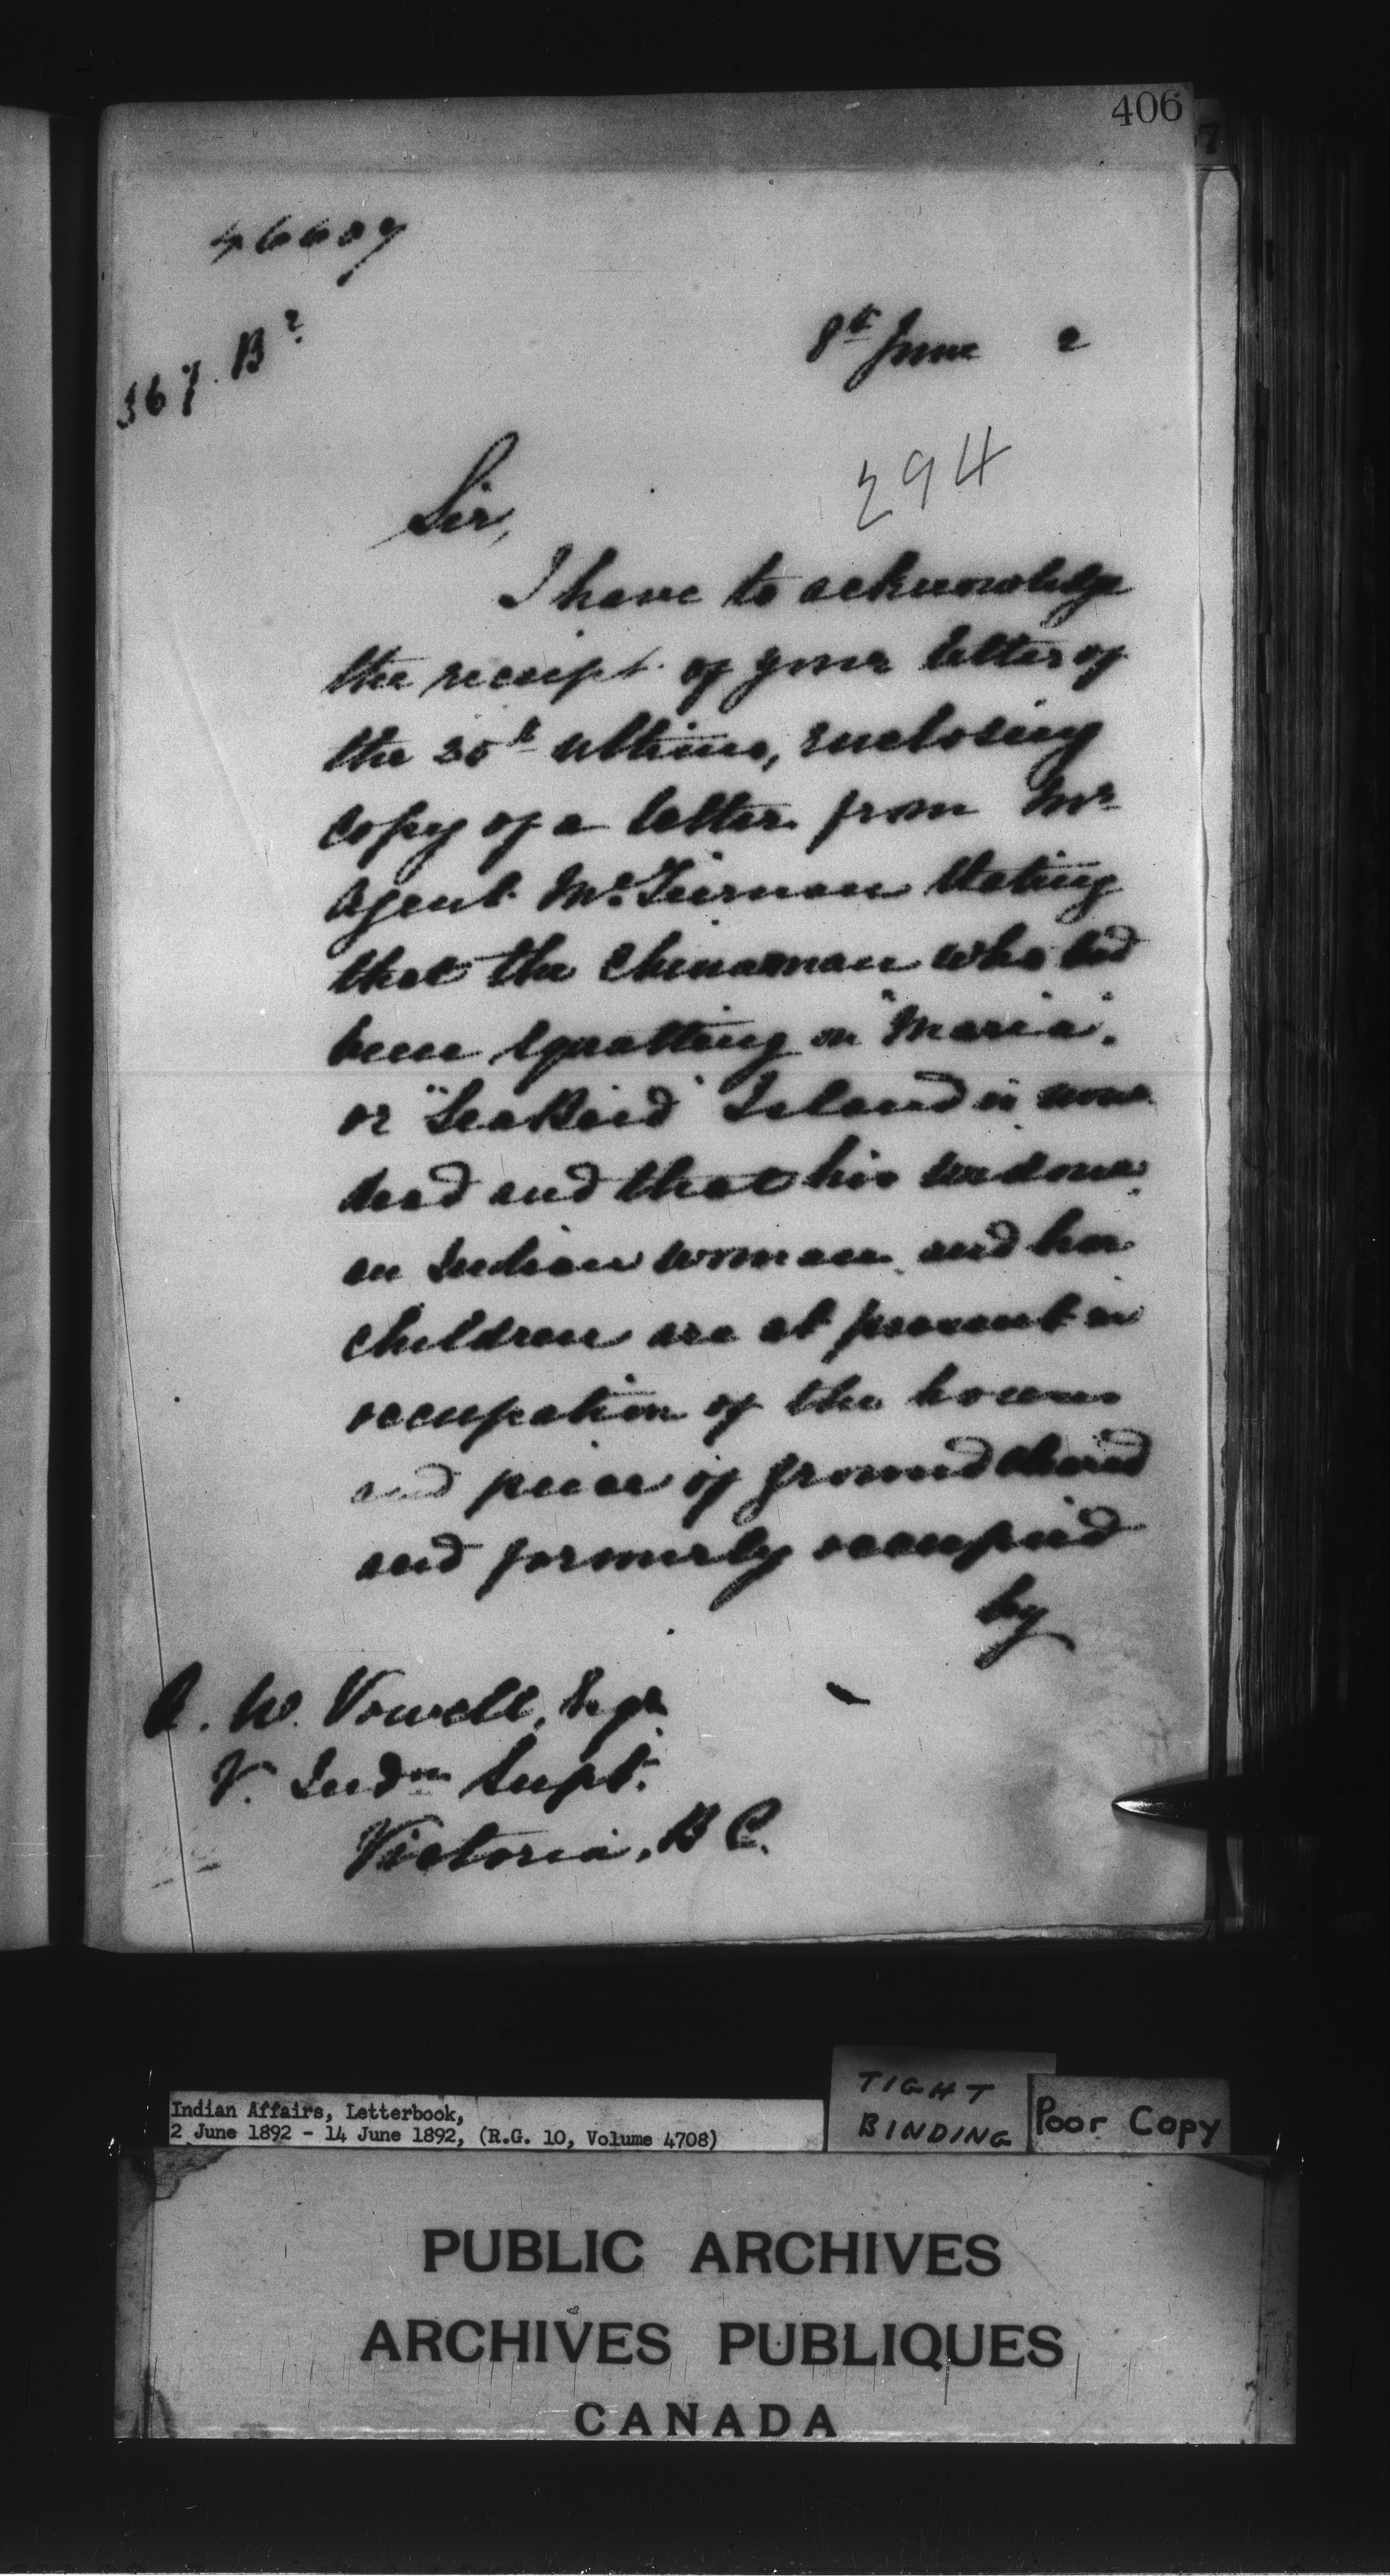 406
46607
367. B²
8th June 2
294
Sir,
I have to acknowledge
the receipt of your letter of
the 30th ultimo, enclosing
copy of a letter from Mr
Agent McTiernan stating
that the Chinaman who had
been squatting on "Maria"
or "Seabird" Island is now
dead and that his widow
an Indian woman and her
children are at present in
occupation of the house
and piece of ground cleared
and formerly occupied
by
A. W. Vowell, Esqr
V. Indn Supt.
Victoria, B C.
Indian Affairs, Letterbook,
2 June 1892 - 14 June 1892, (R.G. 10, Volume 4708)
TIGHT
BINDING
Poor Copy
PUBLIC ARCHIVES
ARCHIVES PUBLIQUES
CANADA